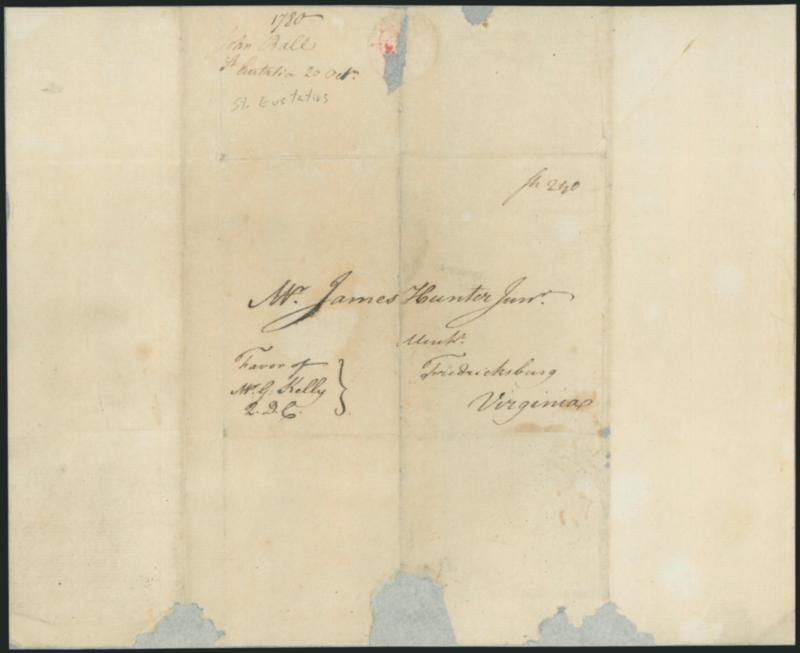 1780
John Ball
St Eustatia 20 Octr.
St. Eustatius
240
Mr. James Hunter Junr.
Mercht.
Fredricksburg
Virginia
Favor of
Mr. G. Kelly
Q. D. C.